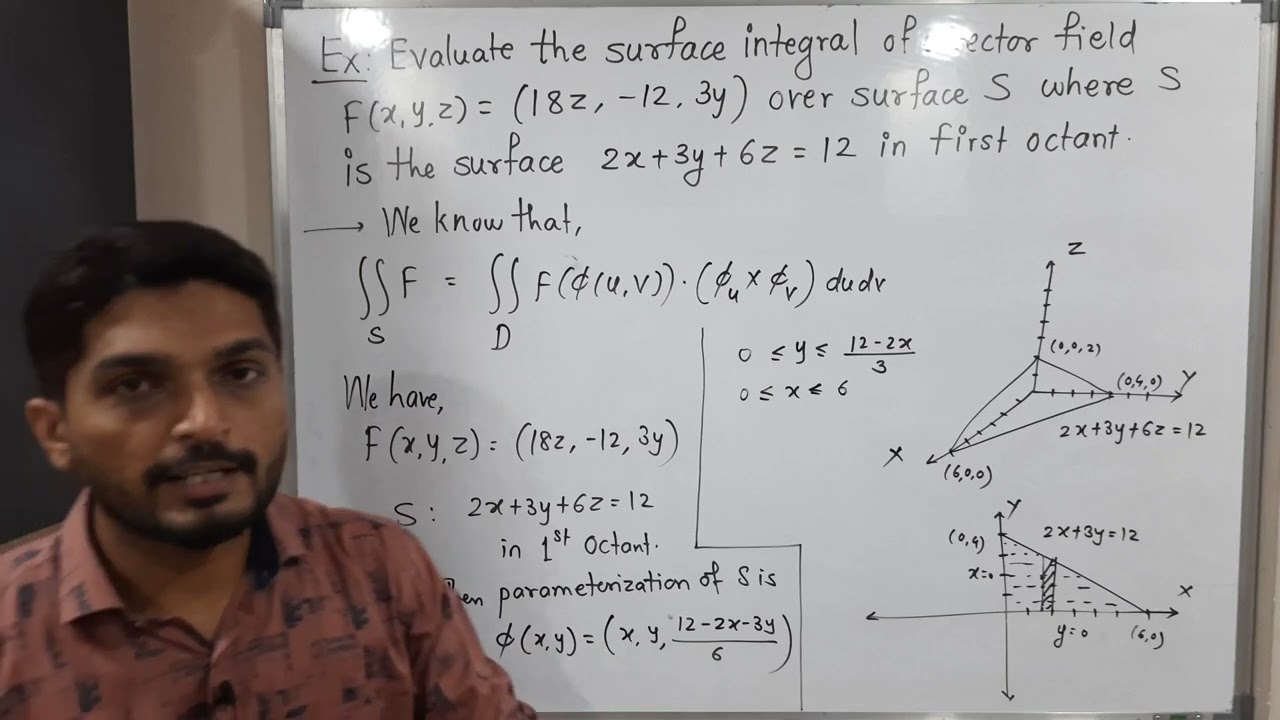 Ex: Evaluate the surface integral of field
F(x,y,z) = (18z, -12, 3y) over surface S where S
is the surface 2x+3y+6z = 12 in first octant.
→ We know that,
∬_S F = ∬_D F(ϕ(u,v)) · (ϕ_u × ϕ_v) du dv
We have,
F(x,y,z) = (18z, -12, 3y)
S: 2x+3y+6z = 12
in 1st Octant.
parameterization of S is
ϕ(x,y) = (x, y, (12-2x-3y)/6)
0 ≤ y ≤ (12-2x)/3
0 ≤ x ≤ 6
Z
(0,0,2)
(0,4,0) Y
2x+3y+6z = 12
X
(6,0,0)
Y
(0,4) 2x+3y=12
x=0 X
y=0 (6,0)